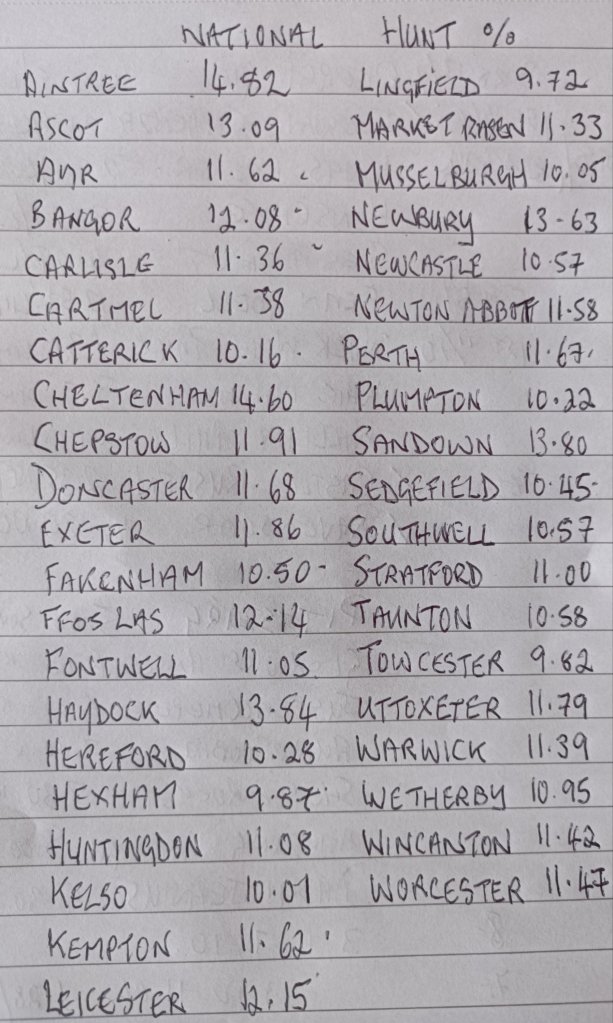 NATIONAL HUNT %
AINTREE 14.82 LINGFIELD 9.72
ASCOT 13.09 MARKET RASEN 11.33
AYR 11.62 MUSSELBURGH 10.05
BANGOR 12.08 NEWBURY 13-63
CARLISLE 11.36 NEWCASTLE 10.57
CARTMEL 11.38 NEWTON ABBOTT 11.58
CATTERICK 10.16 PERTH 11.67
CHELTENHAM 14.60 PLUMPTON 10.22
CHEPSTOW 11.91 SANDOWN 13.80
DONCASTER 11.68 SEDGEFIELD 10.45
EXETER 11.86 SOUTHWELL 10.57
FAKENHAM 10.50 STRATFORD 11.00
FFOS LAS 12.14 TAUNTON 10.58
FONTWELL 11.05 TOWCESTER 9.82
HAYDOCK 13.84 UTTOXETER 11.79
HEREFORD 10.28 WARWICK 11.39
HEXHAM 9.87 WETHERBY 10.95
HUNTINGDON 11.08 WINCANTON 11.42
KELSO 10.01 WORCESTER 11.47
KEMPTON 11.62
LEICESTER 12.15